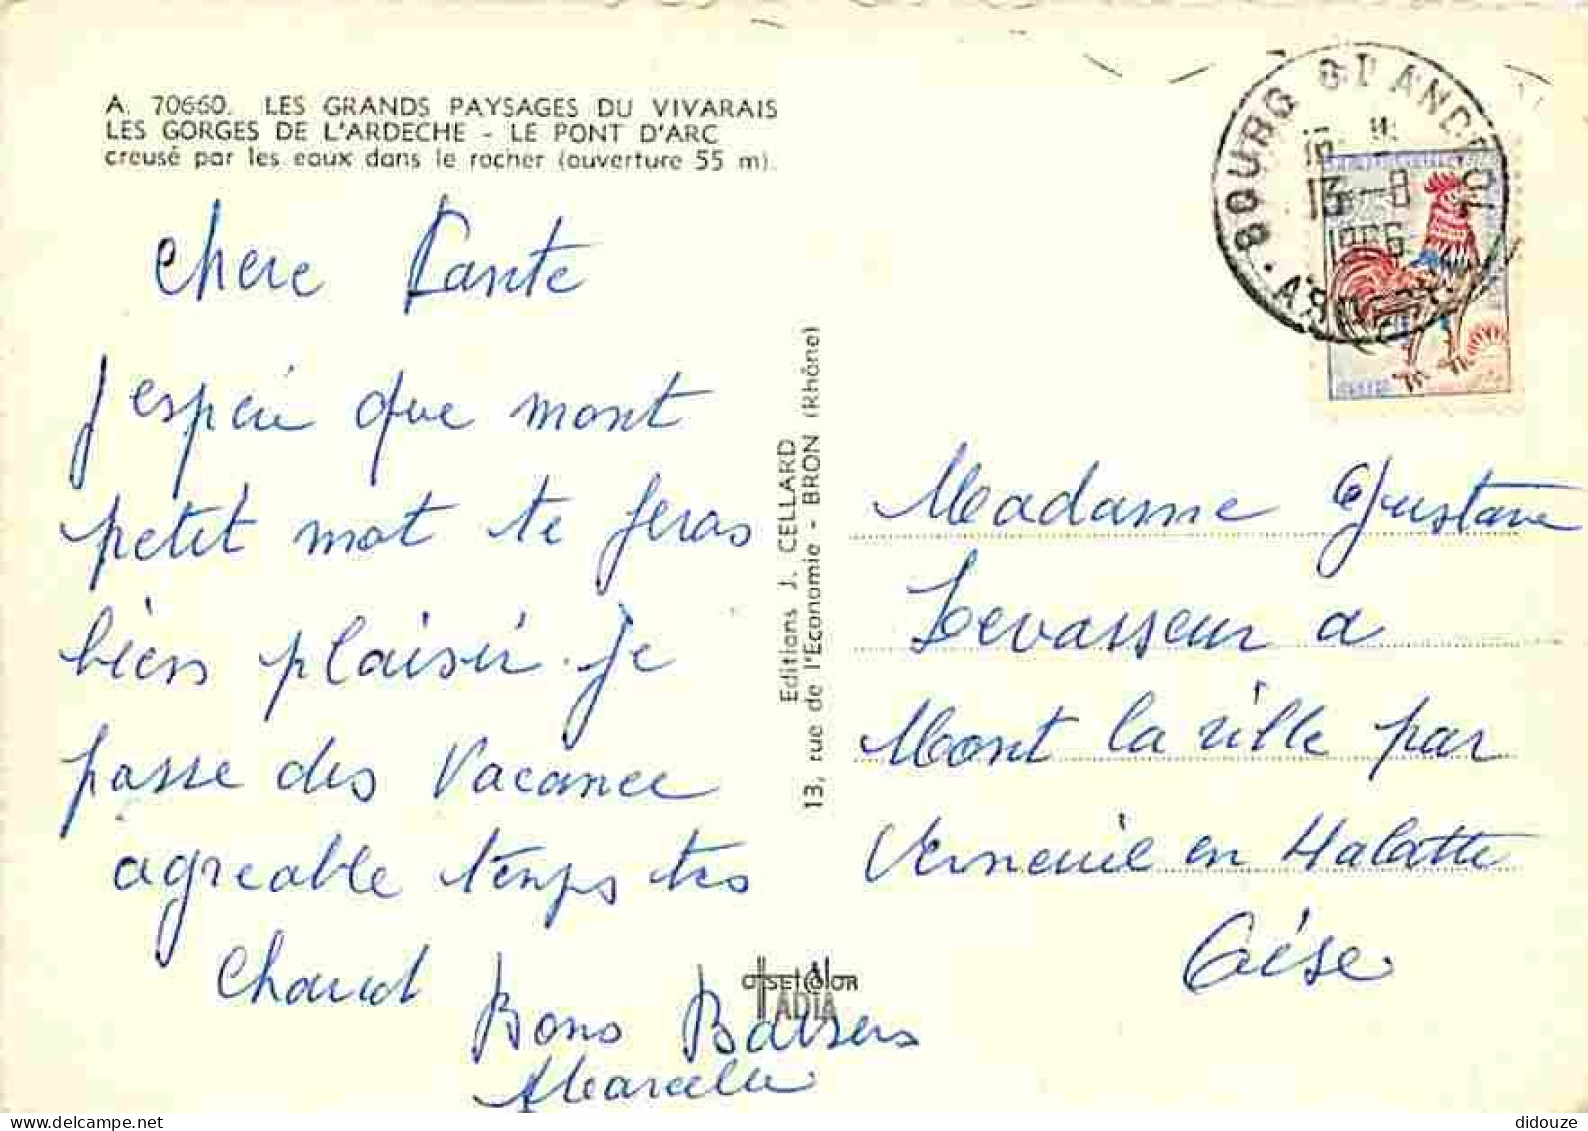 A. 70660. LES GRANDS PAYSAGES DU VIVARAIS
LES GORGES DE L'ARDECHE - LE PONT D'ARC
creusé par les eaux dans le rocher (ouverture 55 m).
chere Tante
j'espere que mont
petit mot te feras
bien plaisir. Je
passe des Vacance
agreable temps tres
Chaud
Bons Baisers
Marcelle
Editions J. CELLARD
13, rue de l'Economie - BRON (Rhône)
OFFSET COLOR
IADIA
BOURG ST ANDEOL
13-8
1966
ARDECHE
Madame Gustave
Levasseur a
Mont la ville par
Verneuil en Halatte
Oise
didouze